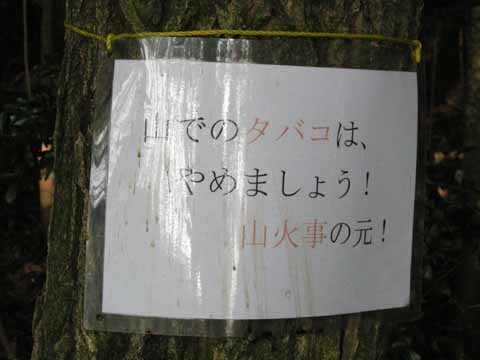 山でのタバコは、
やめましょう！
山火事の元！